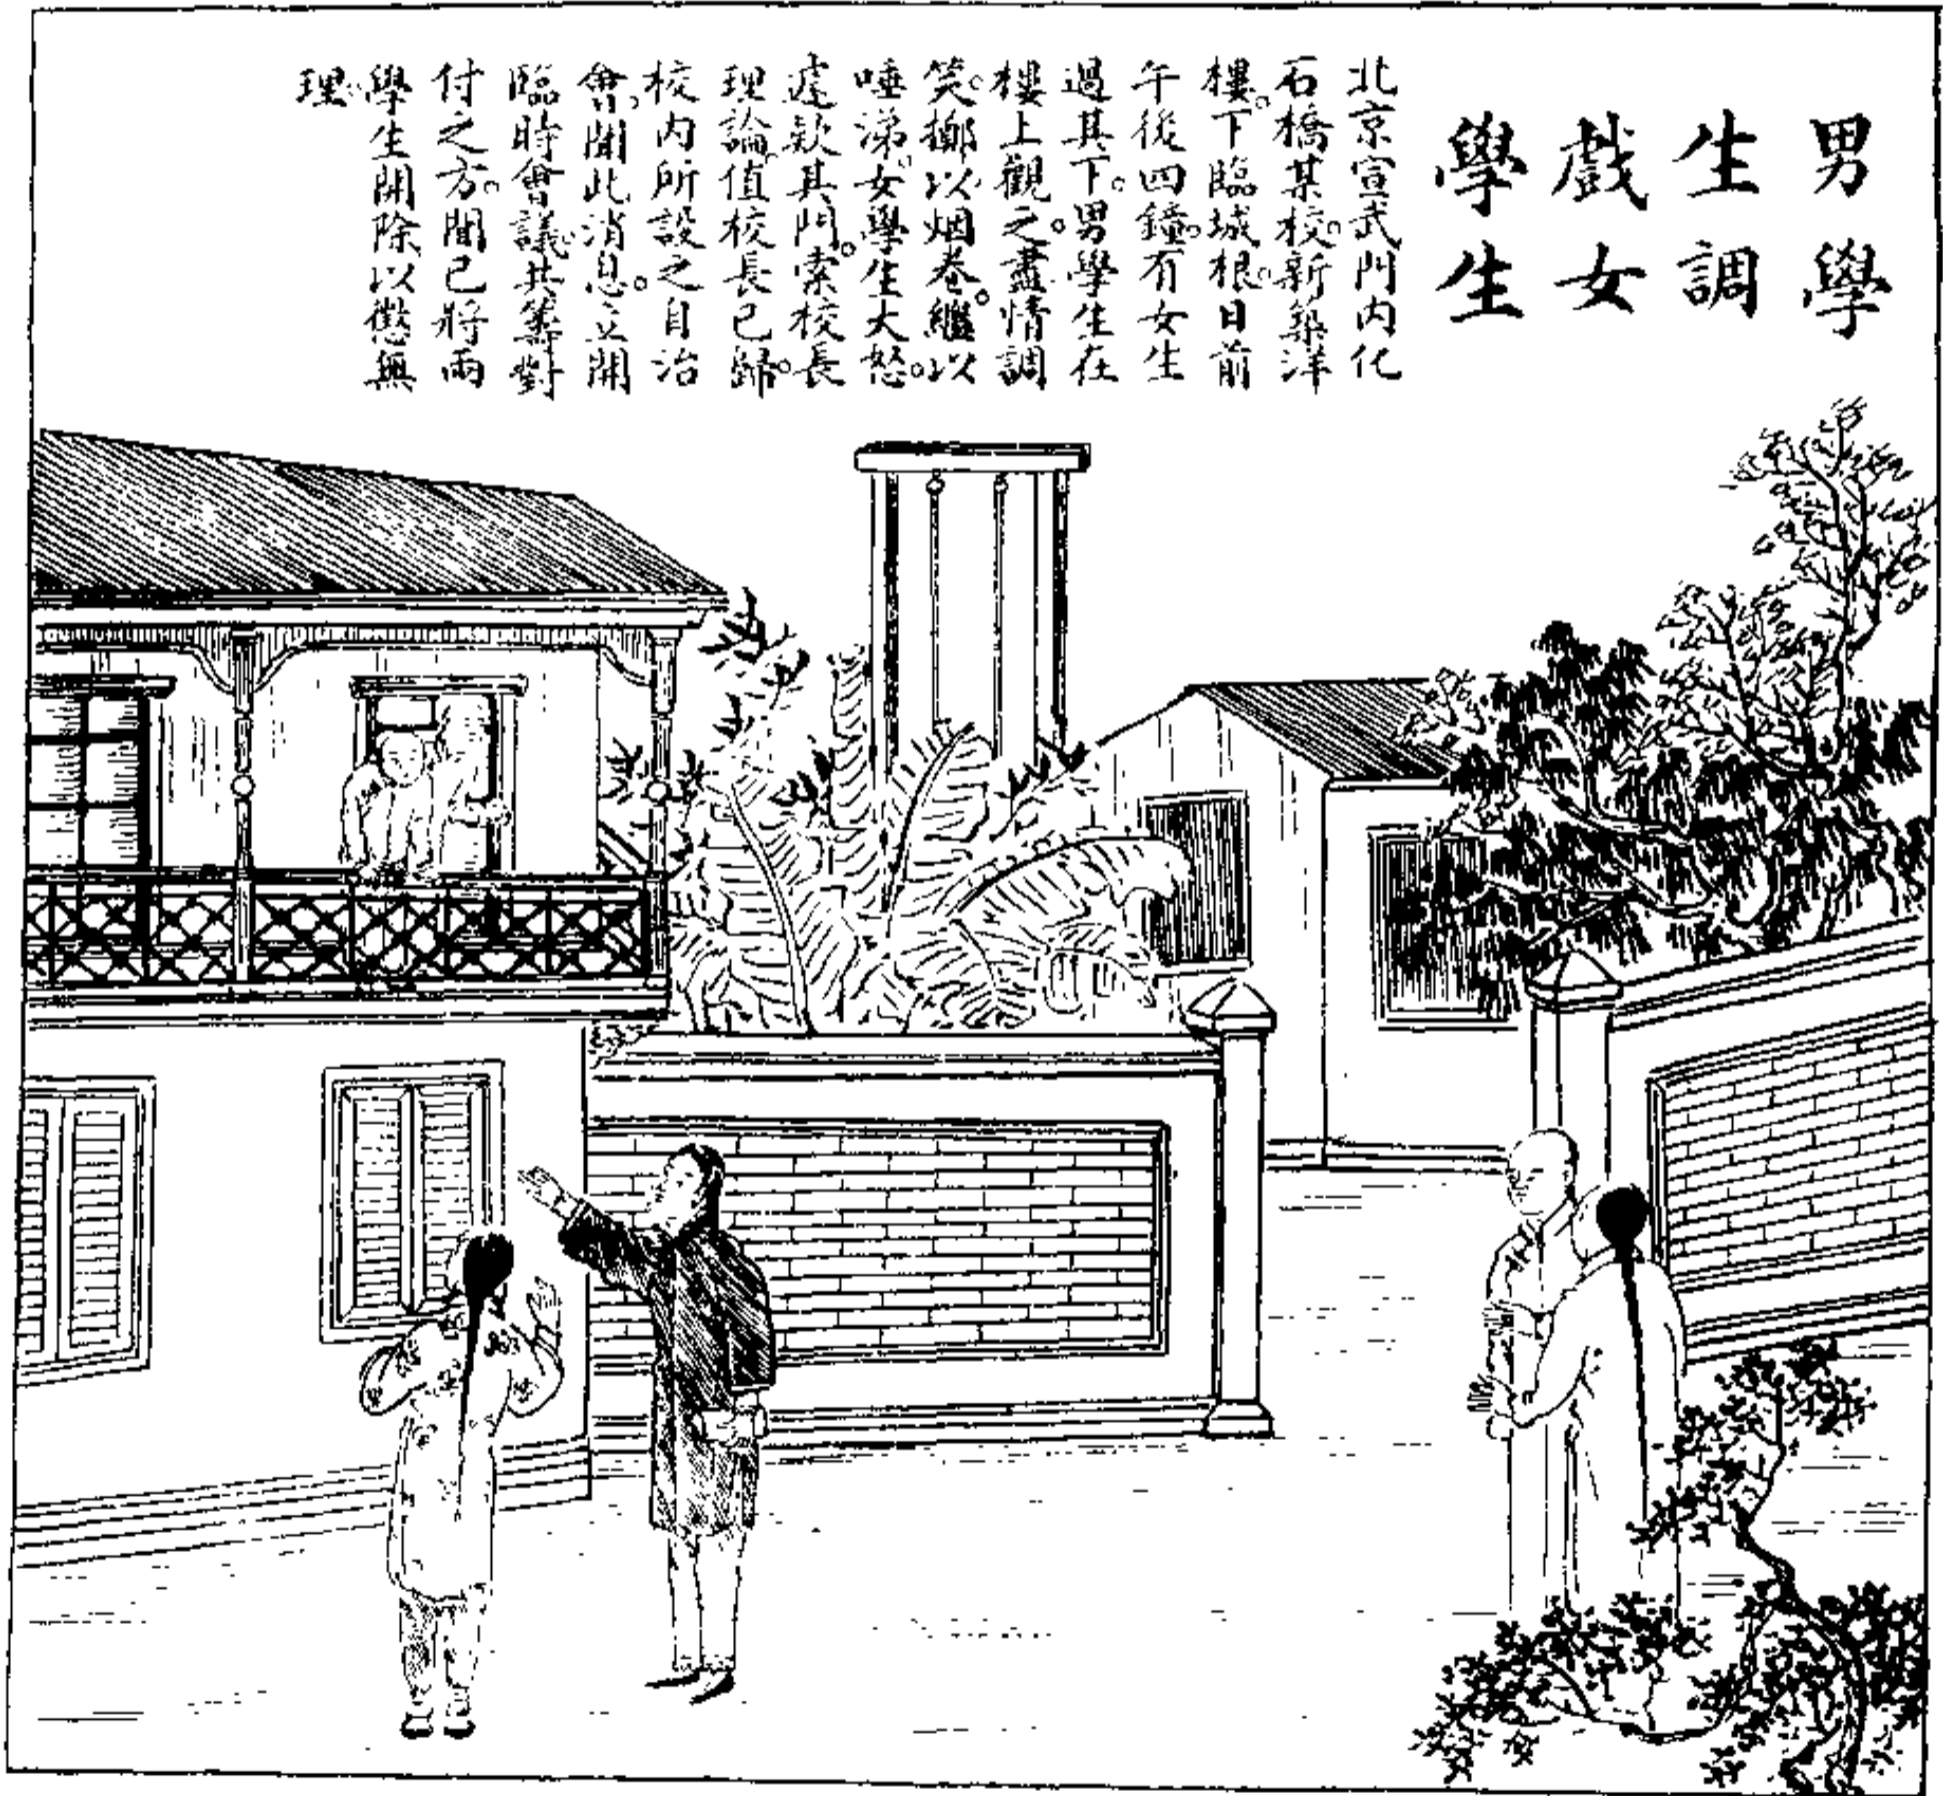 男學
生調
戲女
學生
北京宣武門内化
石橋某校。新築洋
樓。下臨城根。日前
午後四鐘。有女生
過其下。男學生在
樓上觀之。盡情調
笑。擲以烟卷。繼以
唾涕。女學生大怒。
遽欵其門。索校長
理論。值校長已歸。
校内所設之自治
會。聞此消息。立開
臨時會議。共籌對
付之方。聞已將兩
學生開除。以懲無
理。